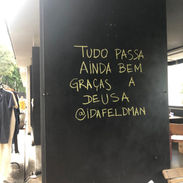 TUDO PASSA
AINDA BEM
GRAÇAS A
DEUSA
@IDAFELDMAN